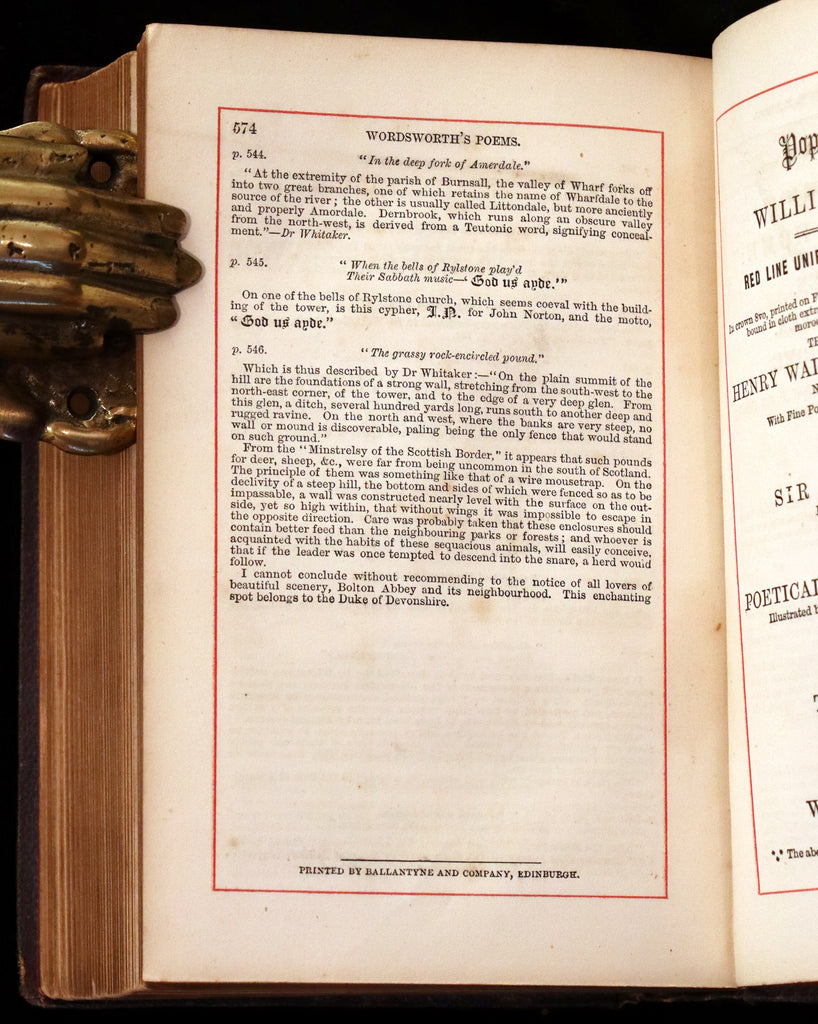 574
WORDSWORTH'S POEMS.
p. 544.
"In the deep fork of Amerdale."
"At the extremity of the parish of Burnsall, the valley of Wharf forks off
into two great branches, one of which retains the name of Wharfdale to the
source of the river; the other is usually called Littondale, but more anciently
and properly Amordale. Dernbrook, which runs along an obscure valley
from the north-west, is derived from a Teutonic word, signifying conceal-
ment."—Dr Whitaker.
p. 545.
"When the bells of Rylstone play'd
Their Sabbath music—'God us ayde.'"
On one of the bells of Rylstone church, which seems coeval with the build-
ing of the tower, is this cypher, J.N. for John Norton, and the motto,
"God us ayde."
p. 546.
"The grassy rock-encircled pound."
Which is thus described by Dr Whitaker:—"On the plain summit of the
hill are the foundations of a strong wall, stretching from the south-west to the
north-east corner, of the tower, and to the edge of a very deep glen. From
this glen, a ditch, several hundred yards long, runs south to another deep and
rugged ravine. On the north and west, where the banks are very steep, no
wall or mound is discoverable, paling being the only fence that would stand
on such ground."
From the "Minstrelsy of the Scottish Border," it appears that such pounds
for deer, sheep, &c., were far from being uncommon in the south of Scotland.
The principle of them was something like that of a wire mousetrap. On the
declivity of a steep hill, the bottom and sides of which were fenced so as to be
impassable, a wall was constructed nearly level with the surface on the out-
side, yet so high within, that without wings it was impossible to escape in
the opposite direction. Care was probably taken that these enclosures should
contain better feed than the neighbouring parks or forests; and whoever is
acquainted with the habits of these sequacious animals, will easily conceive,
that if the leader was once tempted to descend into the snare, a herd would
follow.
I cannot conclude without recommending to the notice of all lovers of
beautiful scenery, Bolton Abbey and its neighbourhood. This enchanting
spot belongs to the Duke of Devonshire.
PRINTED BY BALLANTYNE AND COMPANY, EDINBURGH.
Pop
WILLI
RED LINE UNIF
In crown 8vo, printed on F
bound in cloth extr
moroc
TH
HENRY WA
N
With Fine Po
SIR
POETICAL
Illustrated b
W
The abo